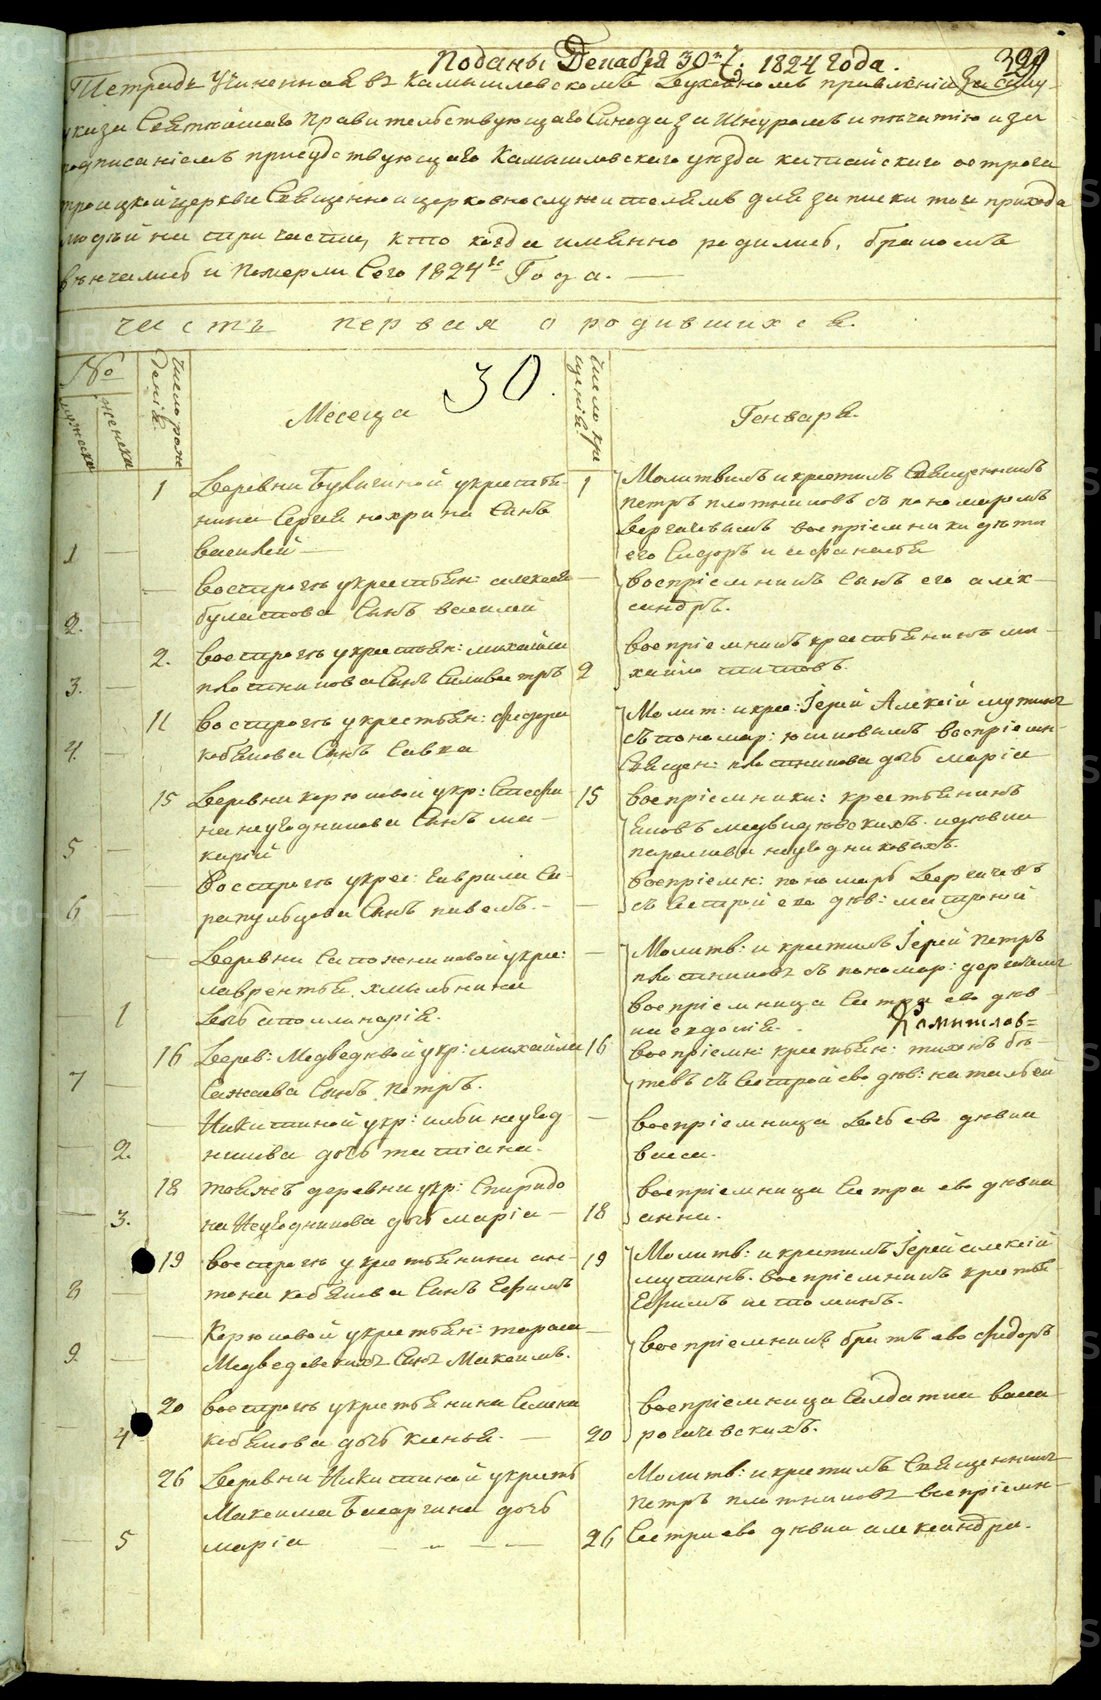 Поданы Декабря 30го 1824 года.
399
Тетрадь Учиненная въ Камышловскомъ Духовномъ правленіи
указа Святейшаго Правительствующаго Синода за Шнуромъ и печатію и за
подписаніемъ присудствующаго Камышловскаго уезда катайскаго острога
троицкой церкви Священно и церковнослужителямъ для записки того прихода
людей на три части, кто когда именно родились, бракомъ
венчались и померли Сего 1824го Года.
часть первая о родившихся.
№ мужеска женска
число рожденія.
Месеца
30
число крещенія.
Генваря.
1 Деревни Бучиной у крестья-
нина Сергея нохрина Сынъ
1 — василей —
1 Молитвилъ и крестилъ Священникъ
петръ плотниковъ съ пономаремъ
воспріемники дети
его Сидоръ и афанасея
— вострогѣ у крестьян: алексея
2. — булатова Сынъ василей
— воспріемникъ Сынъ его алек-
сандръ.
2. вострогѣ у крестьян: михайла
3. — плотникова Сынъ Силиверстръ
2 воспріемникъ крестьянинъ ми-
хайло титовъ.
11 вострогѣ у крестьян: федора
4. — кобякова Сынъ Савка
Молит: и крес: Іерей Алексій мутинъ
съ пономар: воспріемн
Священ: плотникова дочь маріа
15 Деревни корюковой у кр: Стефа
на неуgодникова Сынъ ма-
5 — карій
15 воспріемники: крестьянинъ
яковъ медвидевскихъ и девка
— вострогѣ у крес: гаврила Са
6 — рапульцова Сынъ павелъ. —
— воспріемн: пономарь
съ Сестрой его дев: матроной
— Деревни Сапожниковой у кре:
лаврентья хмыльнина
— 1 Дочь аполинарія.
— Молитв: и крестилъ Іерей петръ
плотниковъ съ пономар:
воспріемница Сестра ево дев
ка евдокія.
Камышлов=
16 Дерев: Медведевой у кр: михайла
7 — Сажаева Сынъ петръ.
16 воспріемн: крестьян: тихонъ
съ Сестрой ево дев: натальей
— Никитиной у кр: ильи неугод
— 2. никова дочь татіана.
— воспріемница Дочь ево девка
васса.
18 тоежъ деревни у кр: Спиридо
— 3. на Неугодникова дочь маріа —
18 воспріемница Сестра ево девка
анна.
19 вострогѣ у крестьянина ан-
8 — тона кобякова Сынъ Ефимъ
19 Молитв: и крестилъ Іерей алексій
мутинъ. воспріемникъ кресть
Ефимъ истоминъ.
— Корюковой у крестьян: тараса
9. — Медведевскихъ Сынъ Максимъ.
— воспріемникъ братъ ево Федоръ
20 вострогѣ у крестьянина Семена
— 4 кобякова дочь ксенья. —
20 воспріемница Солдатка васса
рогачевскихъ.
26 Деревни Никитиной у крестъ
Максима Басаргина дочь
— 5 маріа — — —
Молитв: и крестилъ Священникъ
петръ плотниковъ воспріемн-
26 Сестра ево девка александра.